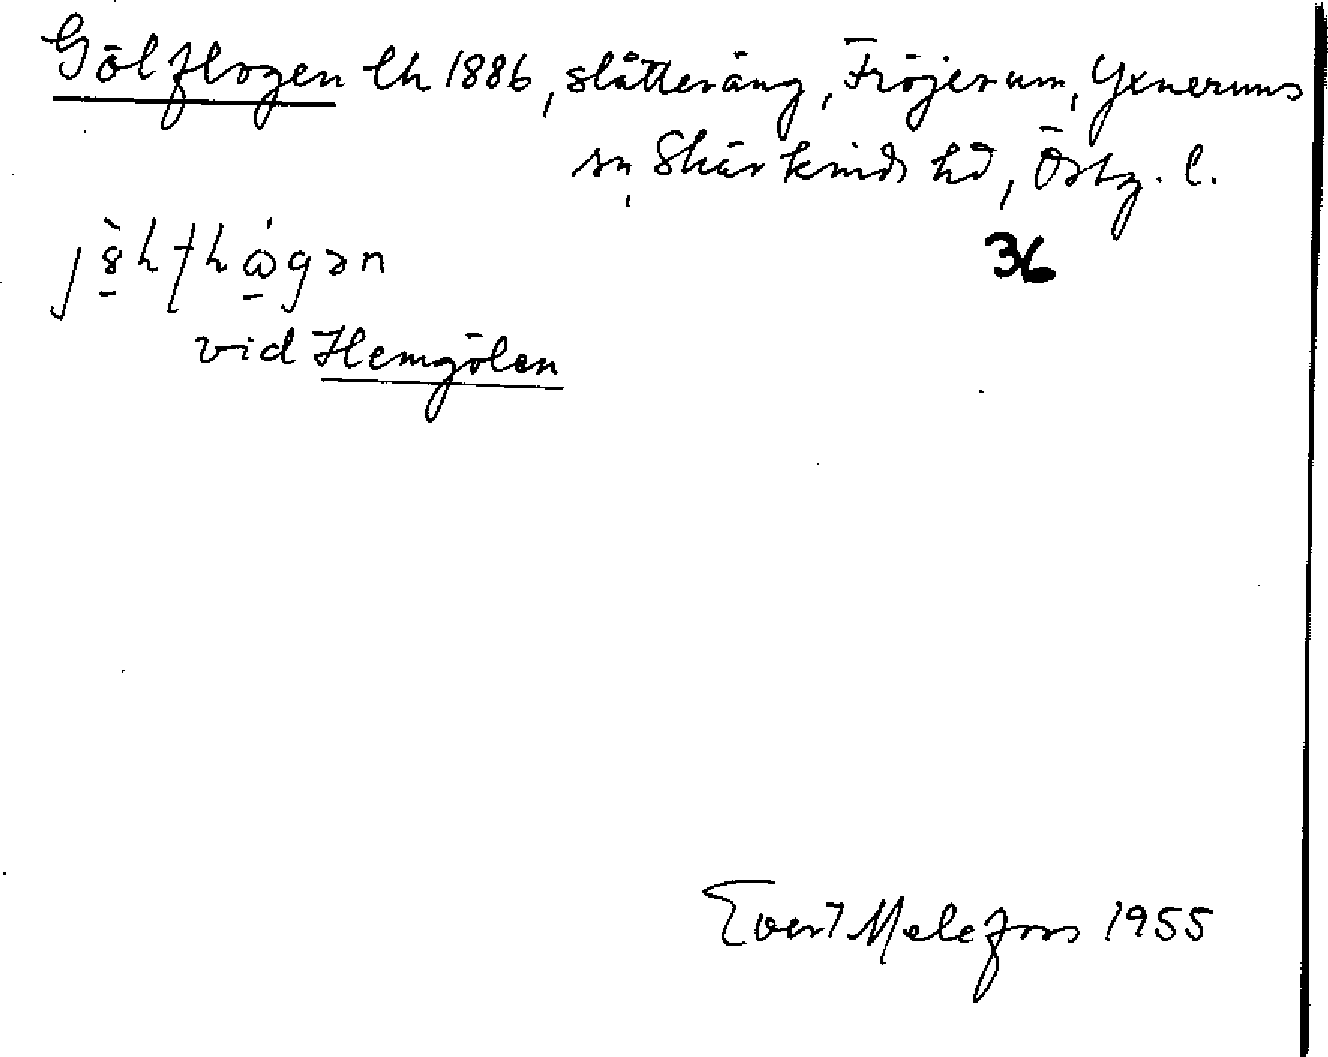 Gölflogen lh 1886, slåtteräng, Fröjerum, Yxnerums
sn, Skärkinds hd, Östg. l.
36
vid Hemgölen
Evert Melefors 1955